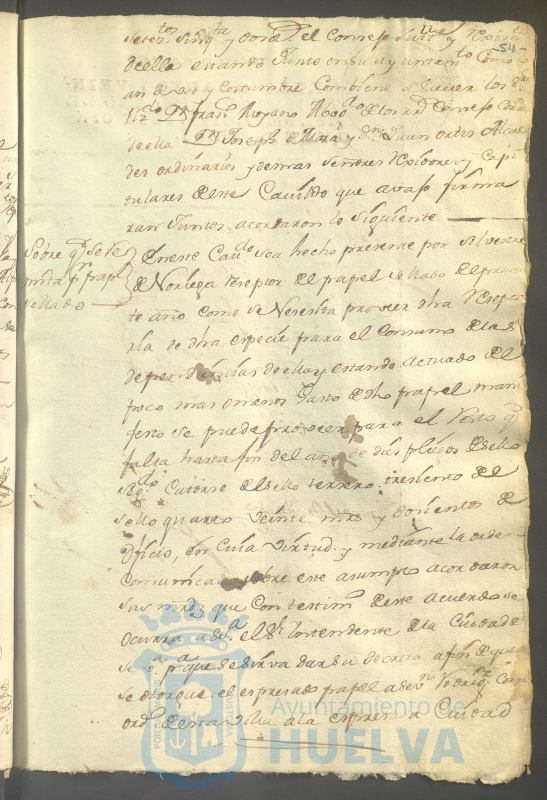 setec.tos sinq.ta y dos a el Consejo Just.a y Reximi.to
54
de ella estando Junto en su ayuntam.to Como lo
an de uso y costumbre Combiene a saver los S.res
Liz.do Dn. Fran.co Moyano Abog.do de los R.s Consejos Corr.or
de ella Dn. Joseph de Mora y Dn. Juan ortis Alcal
des ordinarios y demas señores Rexidores y Capi
tulares de este Cavildo que avajo firma
ran Juntos acordaron lo siguiente
Sobre q.e se re
mita p.r papel
sellado
En este Cav.do sea hecho presente por silvestre
de Noriega reseptor del papel sellado del presen
te año como se Neresita proveer dha Resepto
ria de dha especie para el Consumo de las
dependencias de ella y estando actuado del
poco mas o menos Gasto de dho papel mani
festo se puede proveer para el Resto q.e
falta hasta fin del año de dus pliegos de sello
seg.do Catorse del sello tersero, tresientos del
sello quarto Veinte mrs y dosientos de
oficio, en Cuia Virtud y mediante la orden
Comunicada sobre este asumpto acordaron
sus mrdz. que Con testim.o de este acuerdo se
ocurra a el S.r Intendente de la Ciudad de
Se.a p.a que se sirva dar su decreto a fin de que
se otorgue el espresado papel
ord. de esta Villa a la espresada Ciudad
Ayuntamiento de
HUELVA